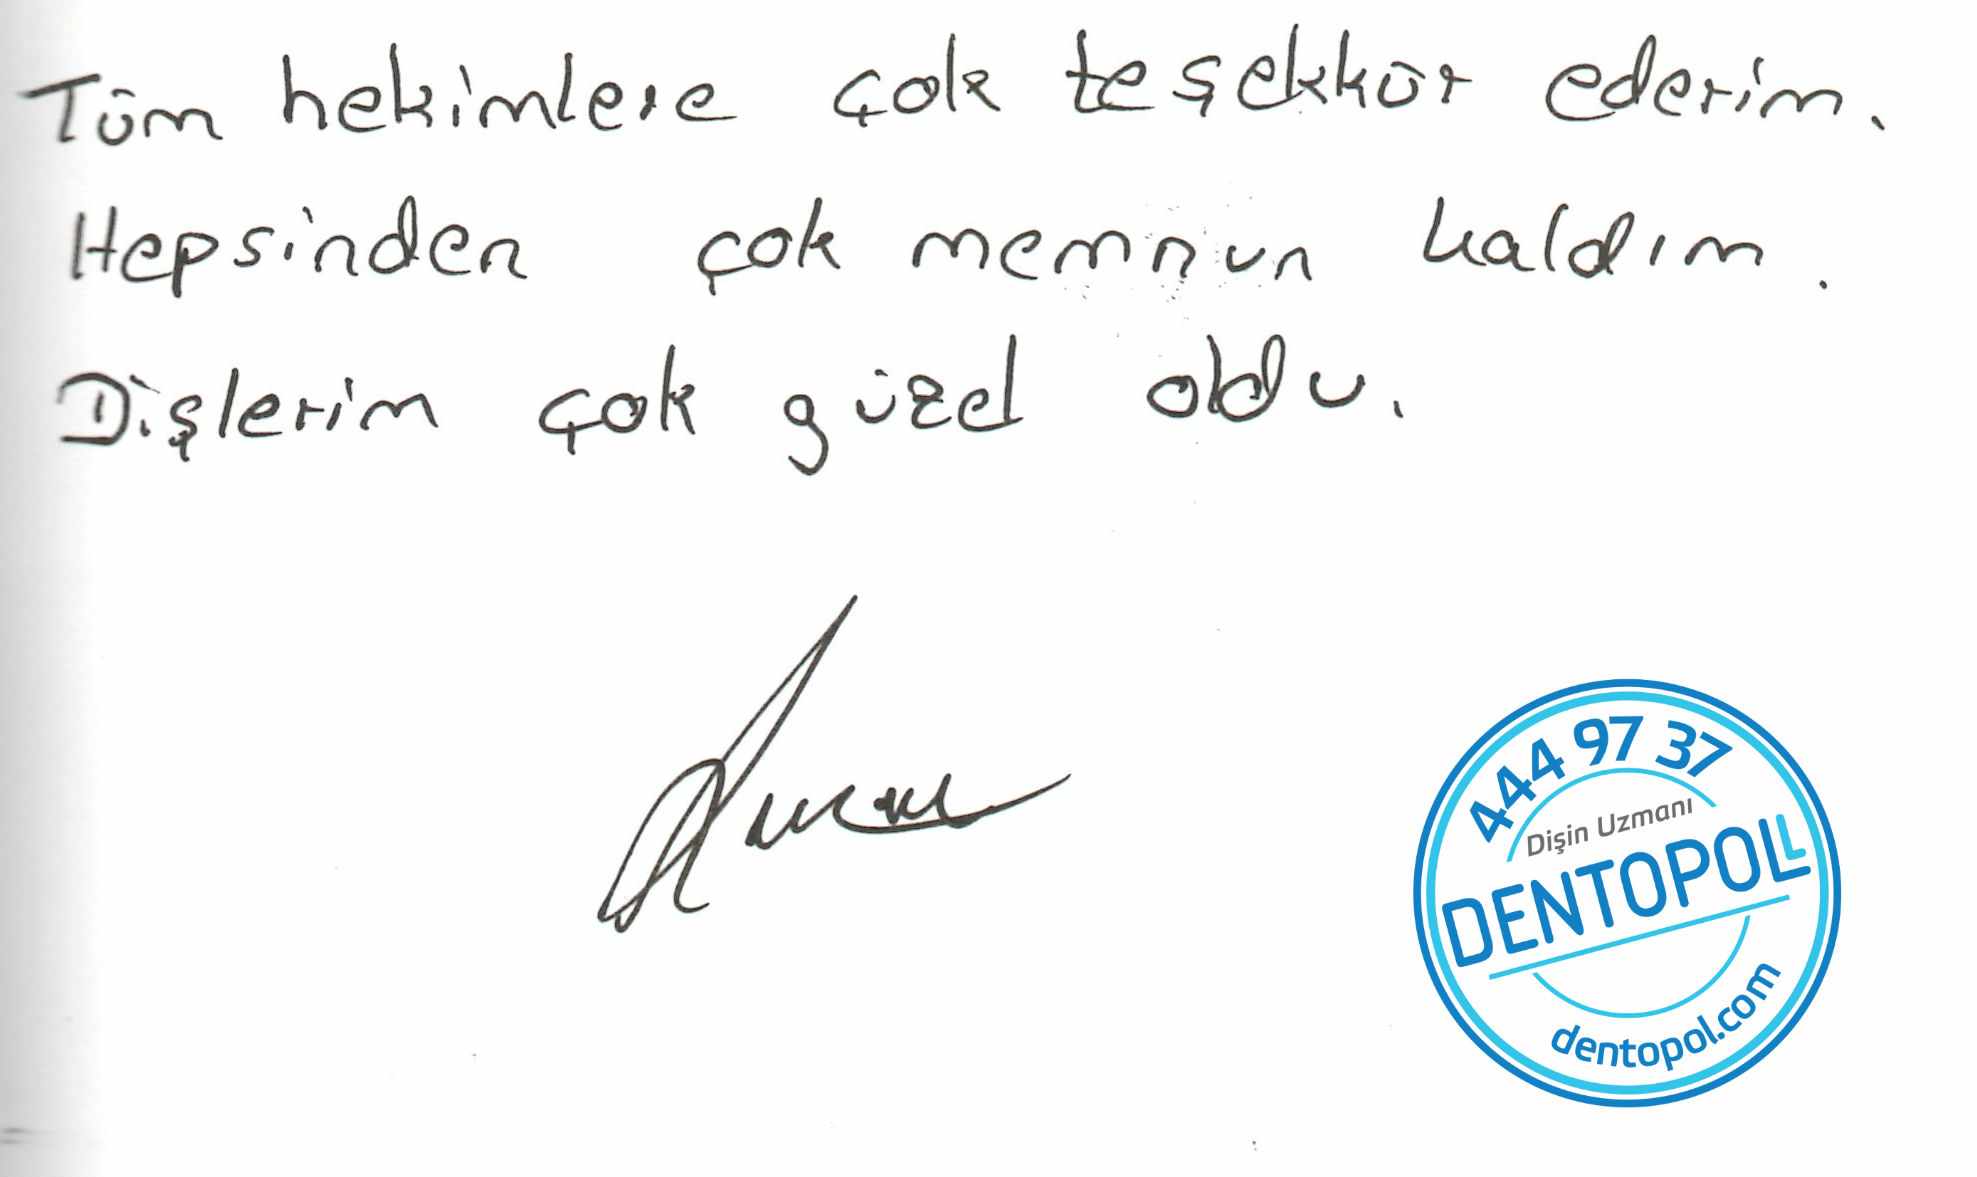 Tüm hekimlere çok teşekkür ederim.
Hepsinden çok memnun kaldım.
Dişlerim çok güzel oldu.
444 97 37
Dişin Uzmanı
DENTOPOL
dentopol.com